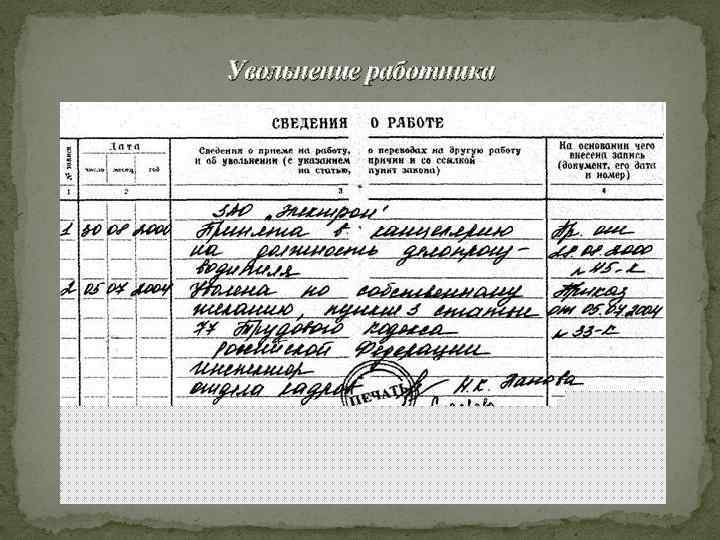 Увольнение работника
СВЕДЕНИЯ О РАБОТЕ
№ записи
Дата
Сведения о приеме на работу, о переводах на другую работу
и об увольнении (с указанием причин и со ссылкой
на статью, пункт закона)
На основании чего
внесена запись
(документ, его дата
и номер)
число месяц год
1 2 3 4
ЗАО "Электрон"
1 30 08 2000 Принята в канцелярию Пр. от
на должность делопроиз- 28.08.2000
водителя №45-к
2 05 07 2004 Уволена по собственному Приказ
желанию, пункт 3 статьи от 05.07.2004
77 Трудового кодекса №33-к
Российской Федерации
Инспектор
отдела кадров ПЕЧАТЬ Н.К. Панова